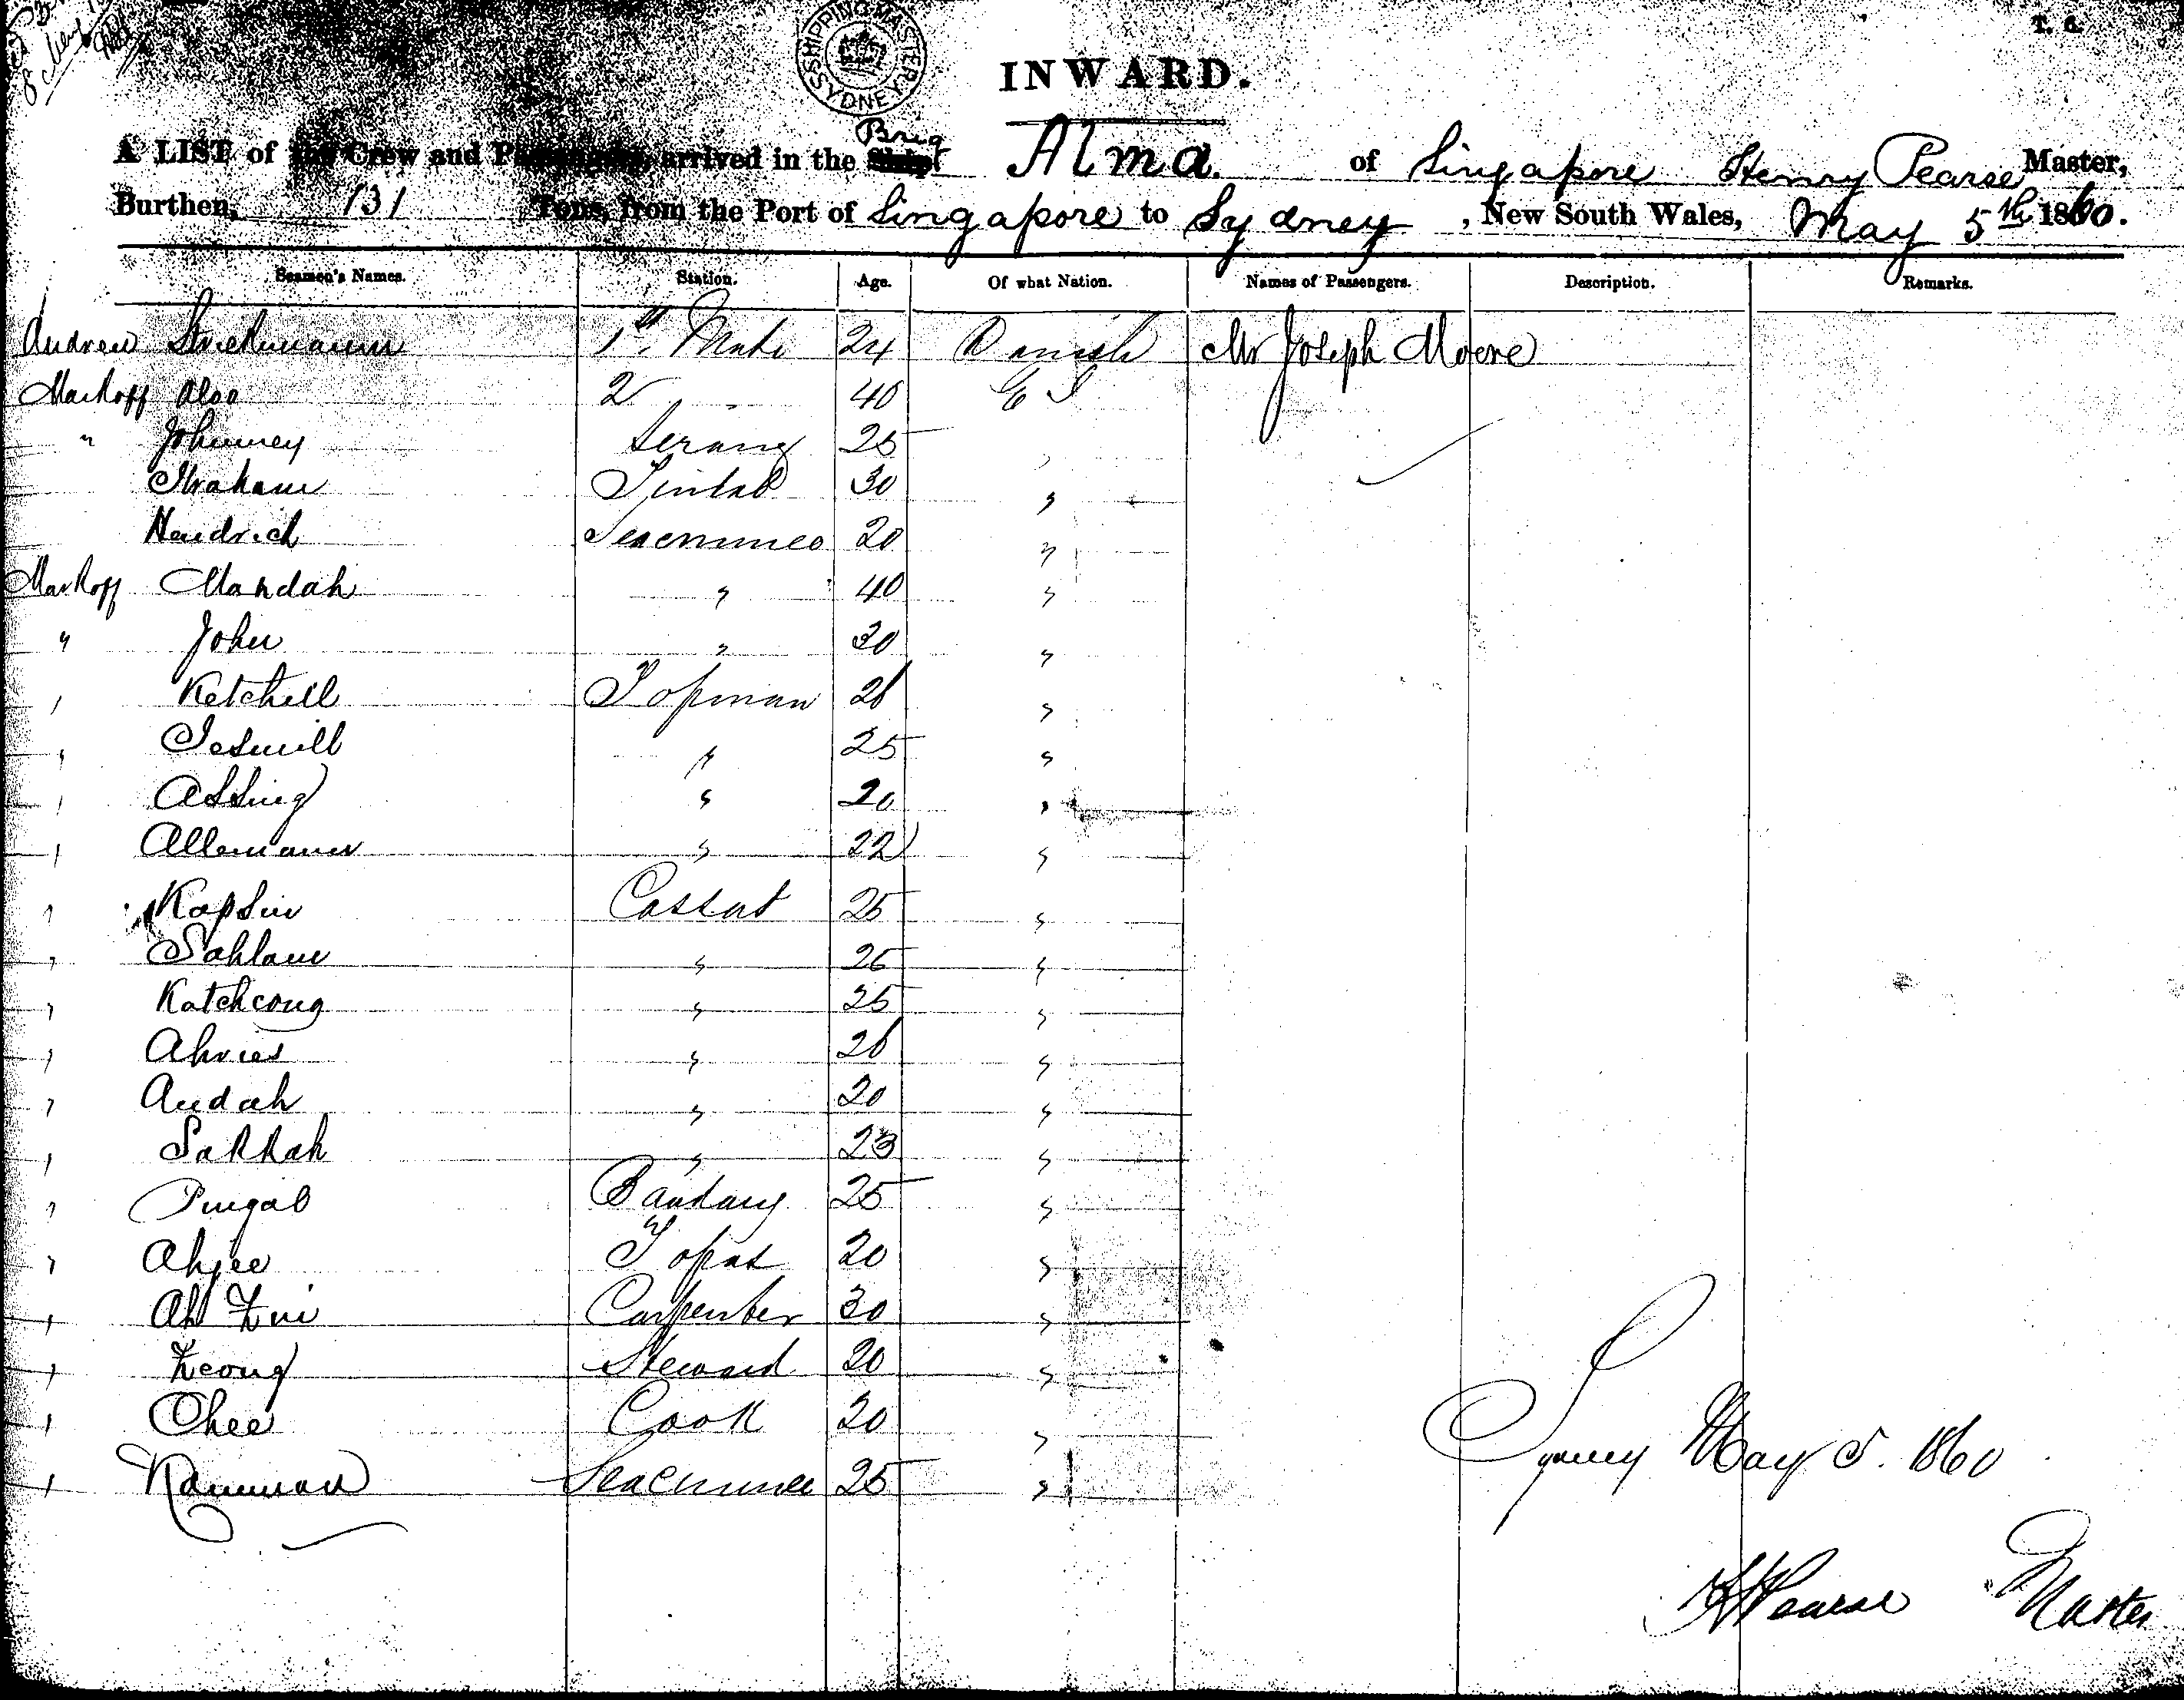 T. 6.
SHIPPING MASTER SYDNEY
INWARD.
Brig
A LIST of the Crew and Passengers arrived in the Ship Alma. of Singapore Henry Pearse Master,
Burthen, 131 Tons, from the Port of Singapore to Sydney, New South Wales, May 5th 1860.
Seamen's Names. Station. Age. Of what Nation. Names of Passengers. Description. Remarks.
Andrew 1st Mate 24 Danish Mr Joseph Moore
Markoff Aloo 2 40 E I
" Johnney Serang 25 "
Ibraham Tindal 30 "
Hendrick Seacunnee 20 "
Markoff Mandah " 40 "
" John " 30 "
" Ketchill Topman 26 "
" " 25 "
" Assing " 20 "
" " 22 "
" Kapsin Cassab 25 "
" Sahlam " 25 "
" Katchcong " 25 "
" Ahries " 26 "
" Audah " 20 "
" Sakkah " 23 "
" Pungal 25 "
" Ahjee Topas 20 "
" Ah Carpenter 30 "
" Steward 20 "
" Chee Cook 20 "
" Seacunnee 25 "
Sydney May 5. 1860
H Pearse Master